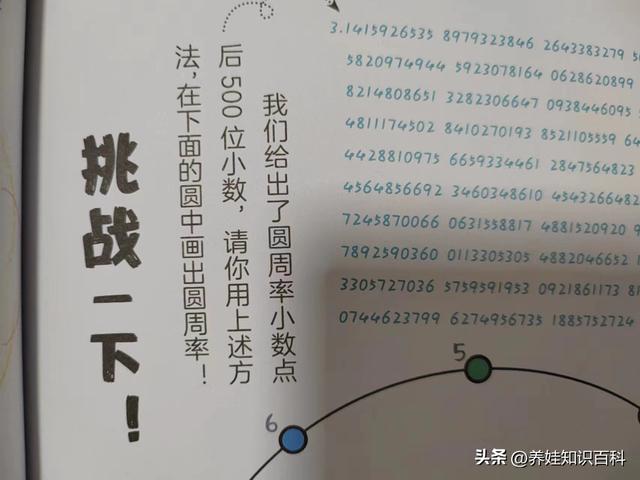 挑战一下！
我们给出了圆周率小数点
后500位小数，请你用上述方
法，在下面的圆中画出圆周率！
3.1415926535 8979323846 2643383279 5
5820974944 5923078164 0628620899
8214808651 3282306647 0938446095
4811174502 8410270193 8521105559 64
4428810975 6659334461 2847564823
4564856692 3460348610 4543266482
7245870066 0631558817 4881520920 9
7892590360 0113305305 4882046652 1
3305727036 5759591953 0921861173 81
0744623799 6274956735 1885752724
5
6
头条 @养娃知识百科